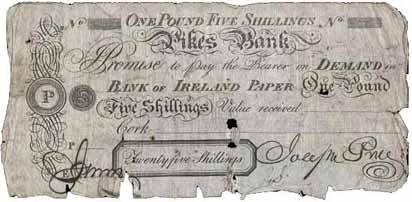 No ONE POUND FIVE SHILLINGS, No
Pikes Bank
I Promise to pay the Bearer on DEMAND in
BANK OF IRELAND PAPER One Pound
P Five Shillings Value received
Cork
P
Twenty five Shillings Joseph Pike